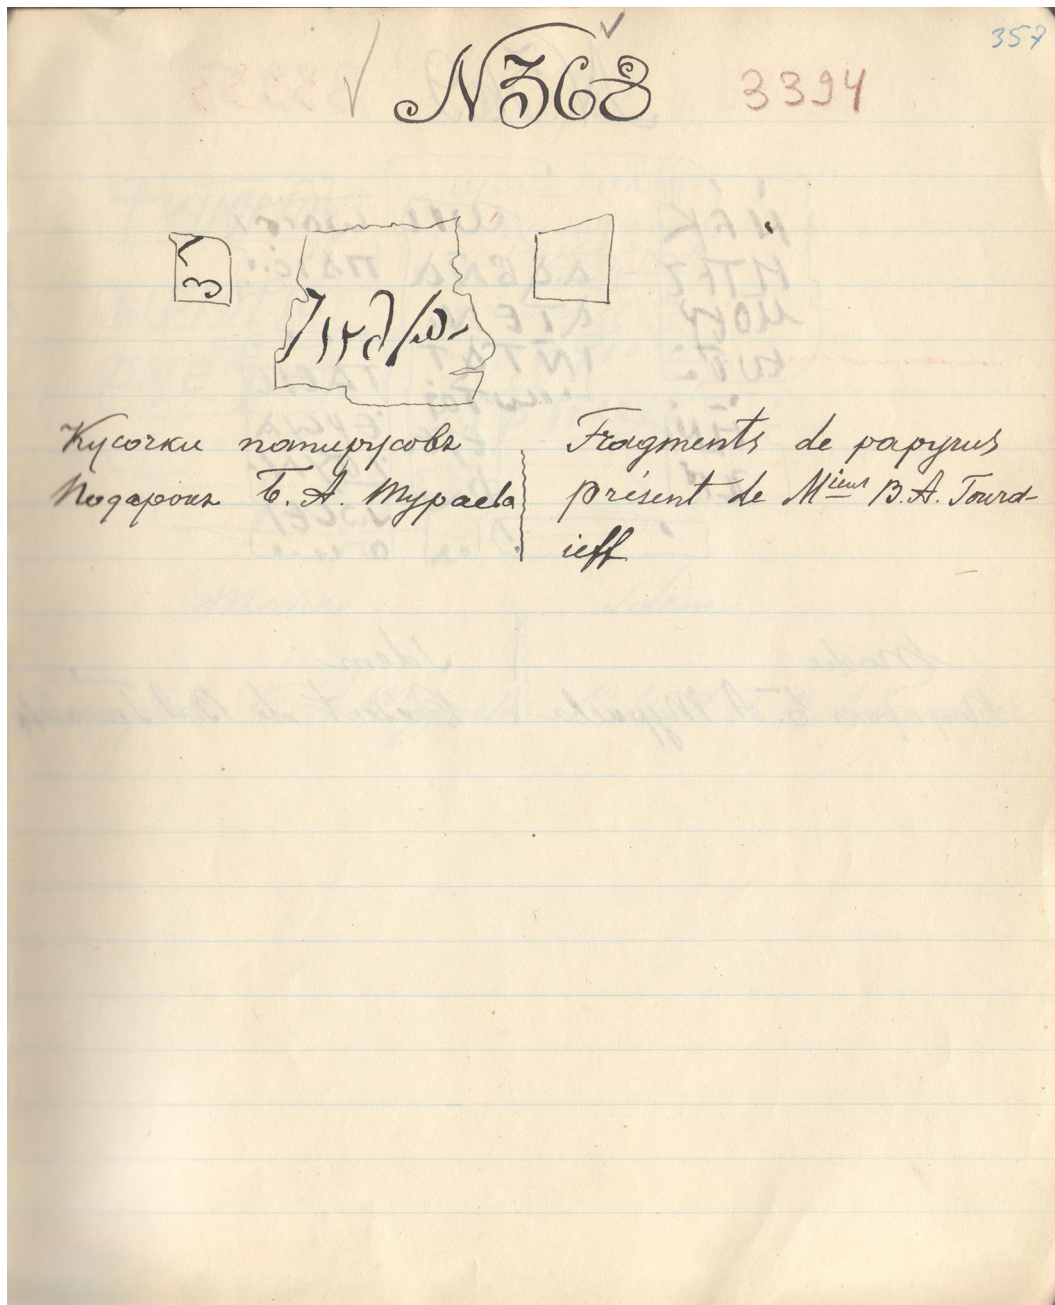 357
N 368
3394
Кусочки папирусовъ
Подарокъ Б. А. Тураева
Fragments de papyrus
présent de Mieur B. A. Toura-
ieff